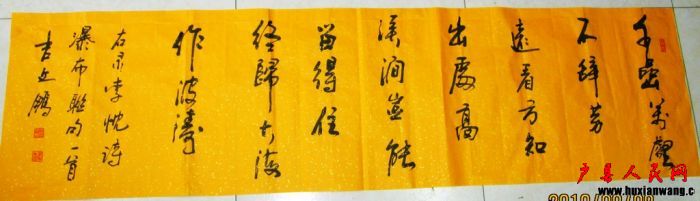 千岩萬壑
不辭劳
遠看方知
出處高
溪澗豈能
留得住
終歸大海
作波濤
右录李忱詩
瀑布聯句一首
户县人民网
www.huxianwang.c